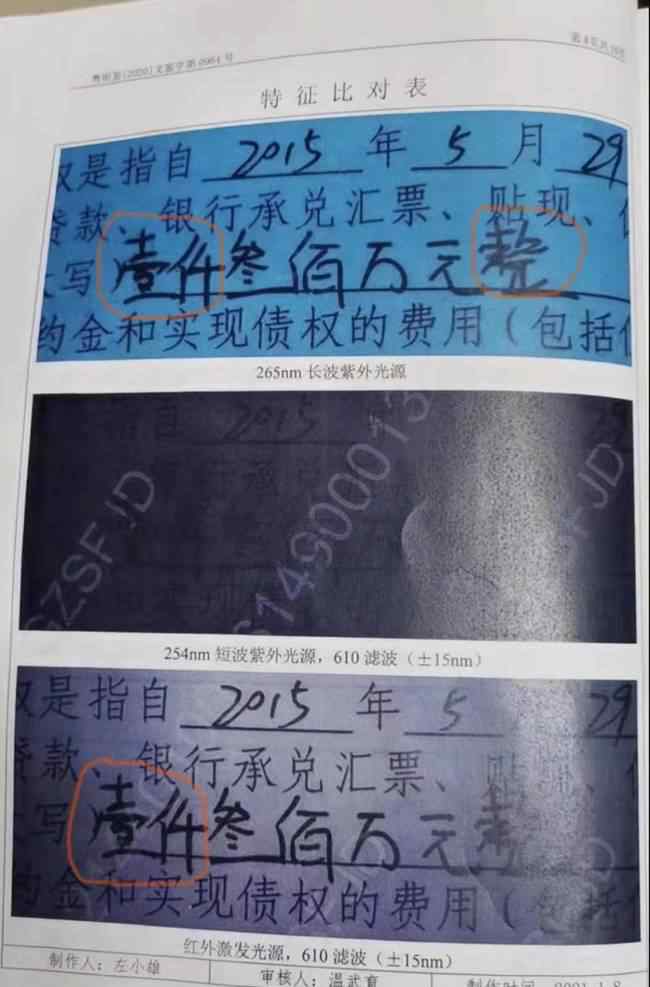 粤明鉴(2020)文鉴字第0964号
特征比对表
是指自 2015 年 5 月 29
款、银行承兑汇票、贴现、
写 壹仟叁佰万元整
约金和实现债权的费用（包括
265nm 长波紫外光源
指自 2015
254nm 短波紫外光源，610 滤波（±15nm）
是指自 2015 年 5 29
款、银行承兑汇票、
写 壹仟叁佰万元整
约金和实现债权的费用（包括
红外激发光源，610 滤波（±15nm）
GZSFJD
6149000013
制作人：左小雄
审核人：温武育
制作时间 2021.1.8